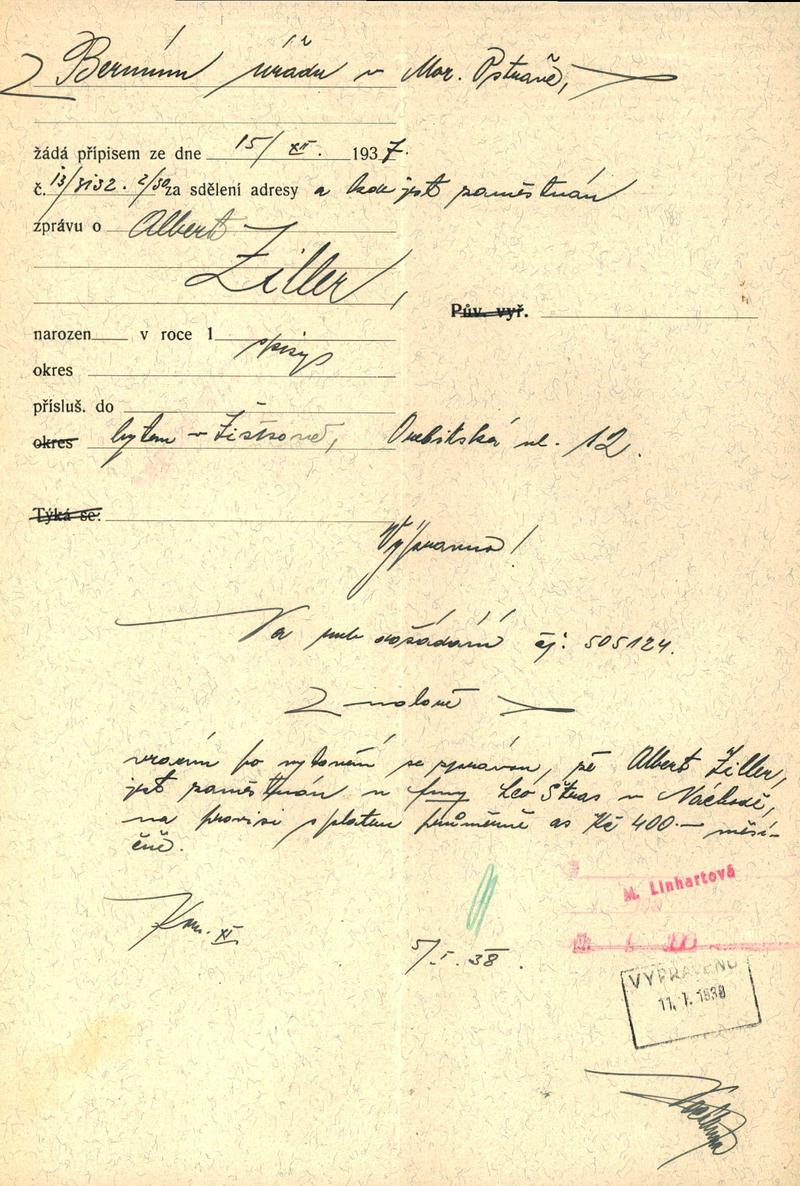 Bernímu úřadu v Mor. Ostravě,
žádá přípisem ze dne 15/XII. 1937.
č. 13/3132. 2/30 za sdělení adresy a kde jest zaměstnán
zprávu o Albert
Ziller,
Pův. vyř.
narozen v roce 1
spisy
okres
přísluš. do
okres bytem v Žižkově, Orebitská ul. 12.
Týká se:
Výpravna!
Na dožádání čj: 505124.
vracím po vyšetření se zprávou, že Albert Ziller,
jest zaměstnán u firmy Leo Štras v Náchodě,
na provisi s platem průměrně as Kč 400.— měsí-
čně.
Kom. XI
5/I. 38.
M. Linhartová
VYPRAVENO
11. 1. 1938